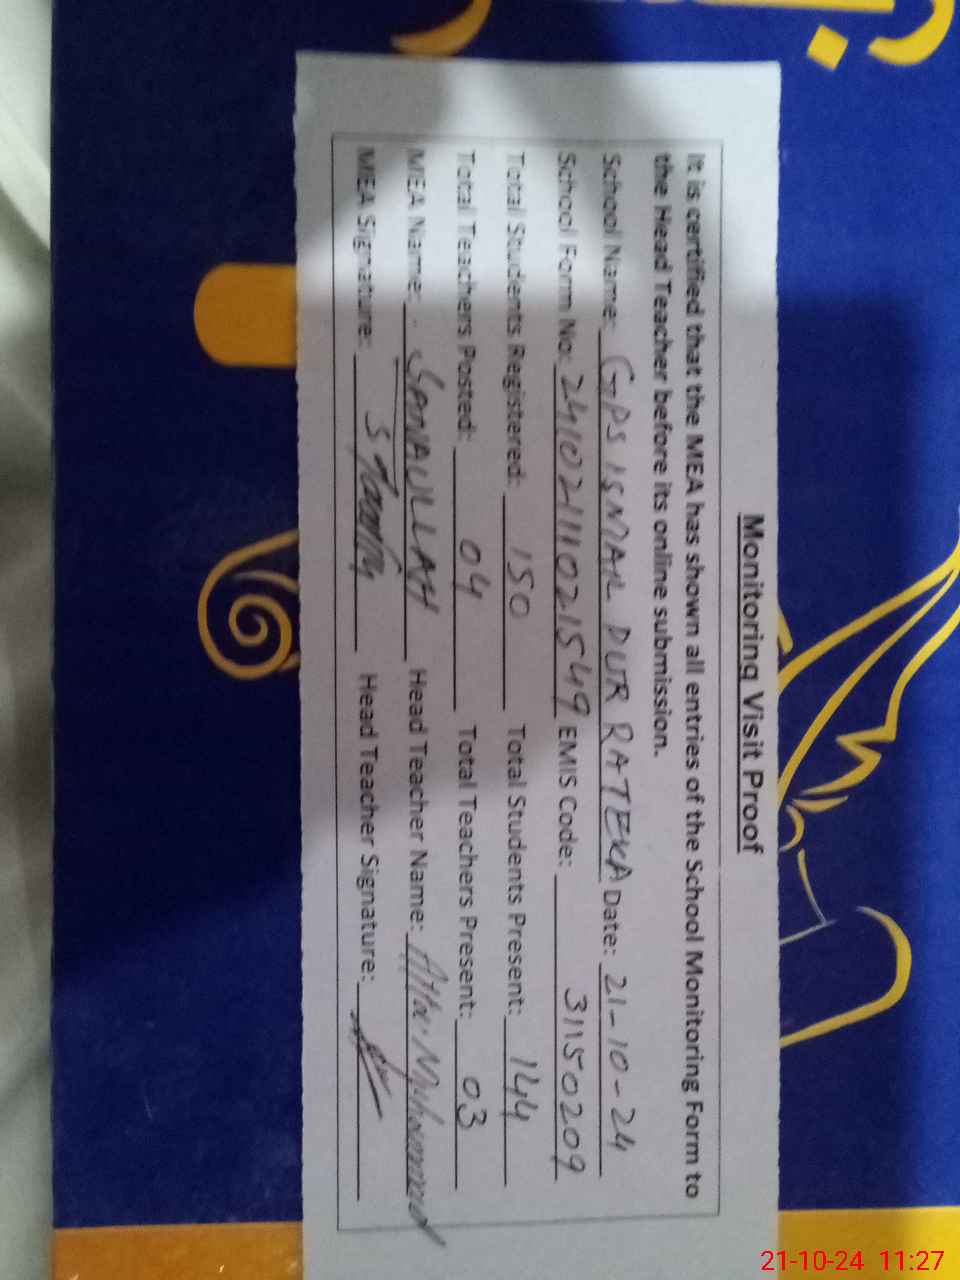 Monitoring Visit Proof
It is certified that the MEA has shown all entries of the School Monitoring Form to
the Head Teacher before its online submission.
School Name: GPS ISMAIL DUR RATEKA Date: 21-10-24
School Form No: 24102111021549 EMIS Code: 31150209
Total Students Registered: 150 Total Students Present: 144
Total Teachers Posted: 04 Total Teachers Present: 03
MEA Name: SANAULLAH Head Teacher Name: Atta Muhammad
MEA Signature: Head Teacher Signature:
21-10-24 11:27